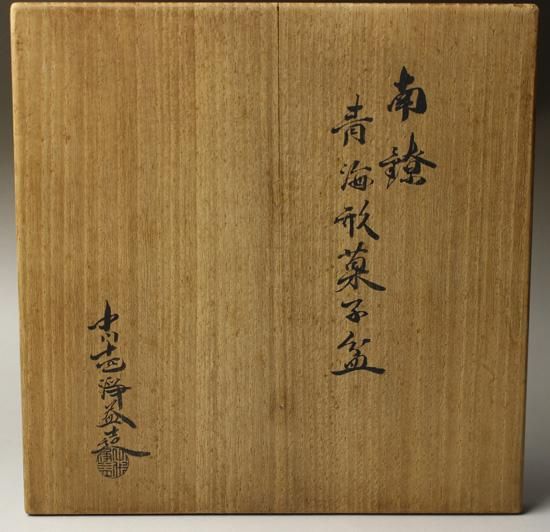 南鐐
青海形菓子盆
中川浄益造